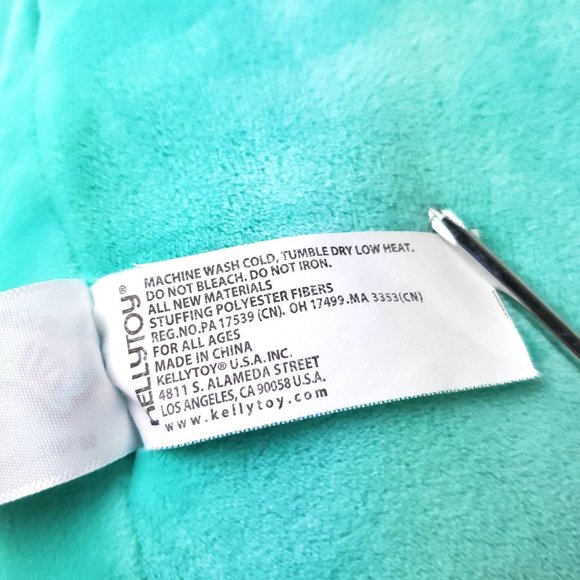 KELLYTOY®
MACHINE WASH COLD, TUMBLE DRY LOW HEAT.
DO NOT BLEACH. DO NOT IRON.
ALL NEW MATERIALS
STUFFING POLYESTER FIBERS
REG.NO.PA 17539 (CN). OH 17499.MA 3353(CN)
FOR ALL AGES
MADE IN CHINA
KELLYTOY® U.S.A. INC.
4811 S. ALAMEDA STREET
LOS ANGELES, CA 90058 U.S.A.
www.kellytoy.com